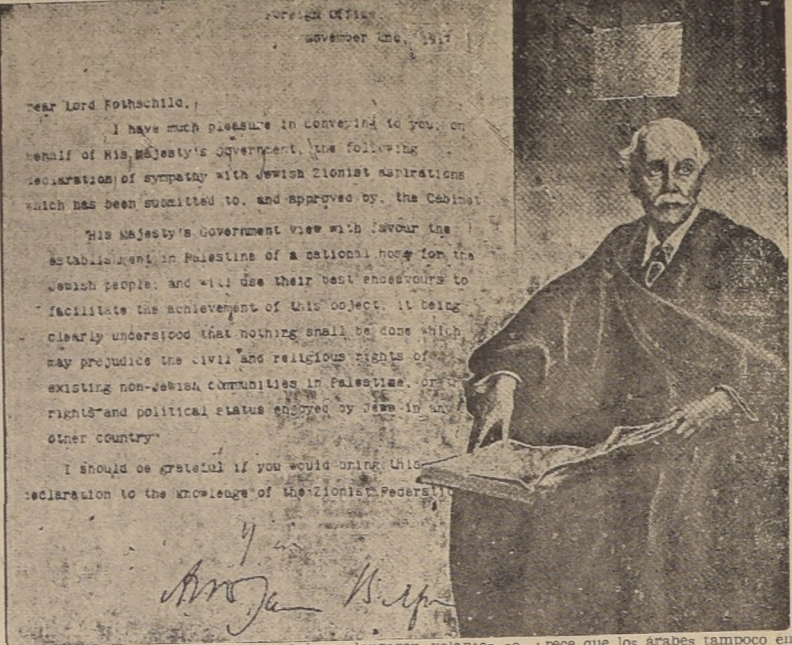 Foreign Office.
November 2nd, 1917
Dear Lord Rothschild,
I have much pleasure in conveying to you, on
behalf of His Majesty's Government, the following
declaration of sympathy with Jewish Zionist aspirations
which has been submitted to, and approved by, the Cabinet
"His Majesty's Government view with favour the
establishment in Palestine of a national home for the
Jewish people, and will use their best endeavours to
facilitate the achievement of this object, it being
clearly understood that nothing shall be done which
may prejudice the civil and religious rights of
existing non-Jewish communities in Palestine, or
rights and political status enjoyed by Jews in any
other country"
I should be grateful if you would bring this
declaration to the knowledge of the Zionist Federation
que los árabes tampoco en